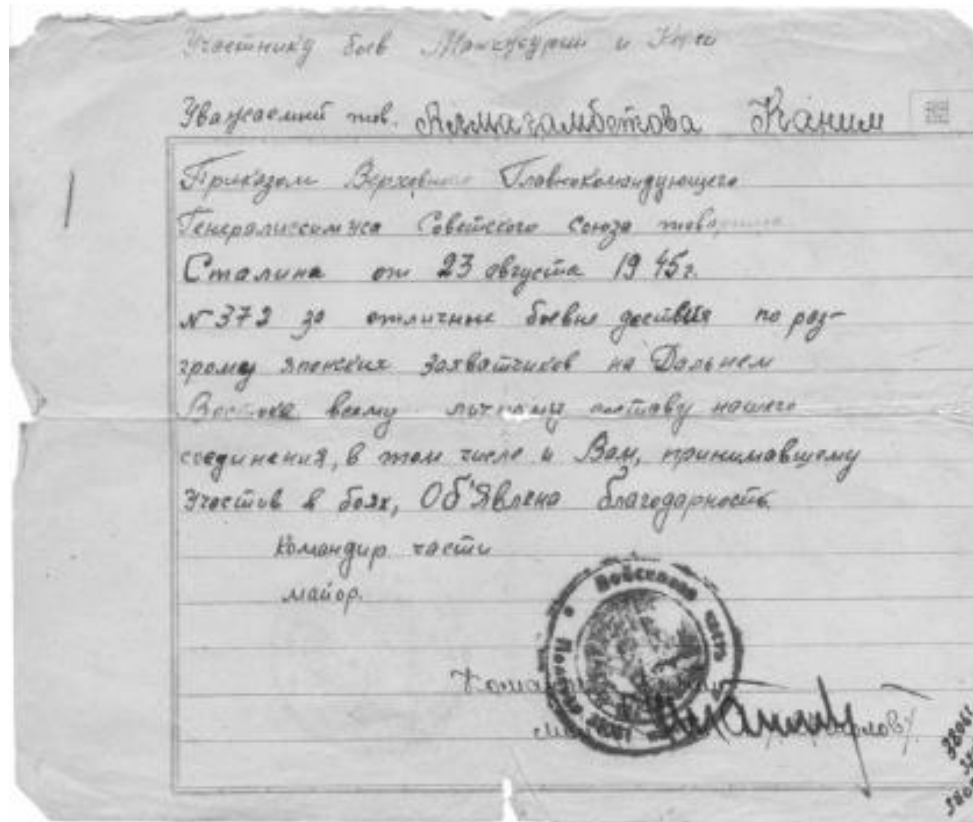 Участнику боев Манчжурии и Кореи
Уважаемый тов. Алмагамбетова Каким
Приказом Верховного Главнокомандующего
Генералиссимуса Советского Союза товарища
Сталина от 23 августа 1945г.
№ 372 за отличные боевые действия по раз-
грому японских захватчиков на Дальнем
Востоке всему личному составу нашего
соединения, в том числе и Вам, принимавшему
участие в боях, Об'Явлена благодарность.
Командир части
майор.
Войсковая часть